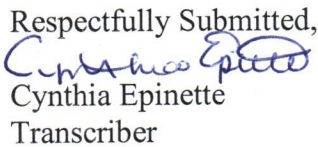 Respectfully Submitted,
Cynthia Epinette
Cynthia Epinette
Transcriber